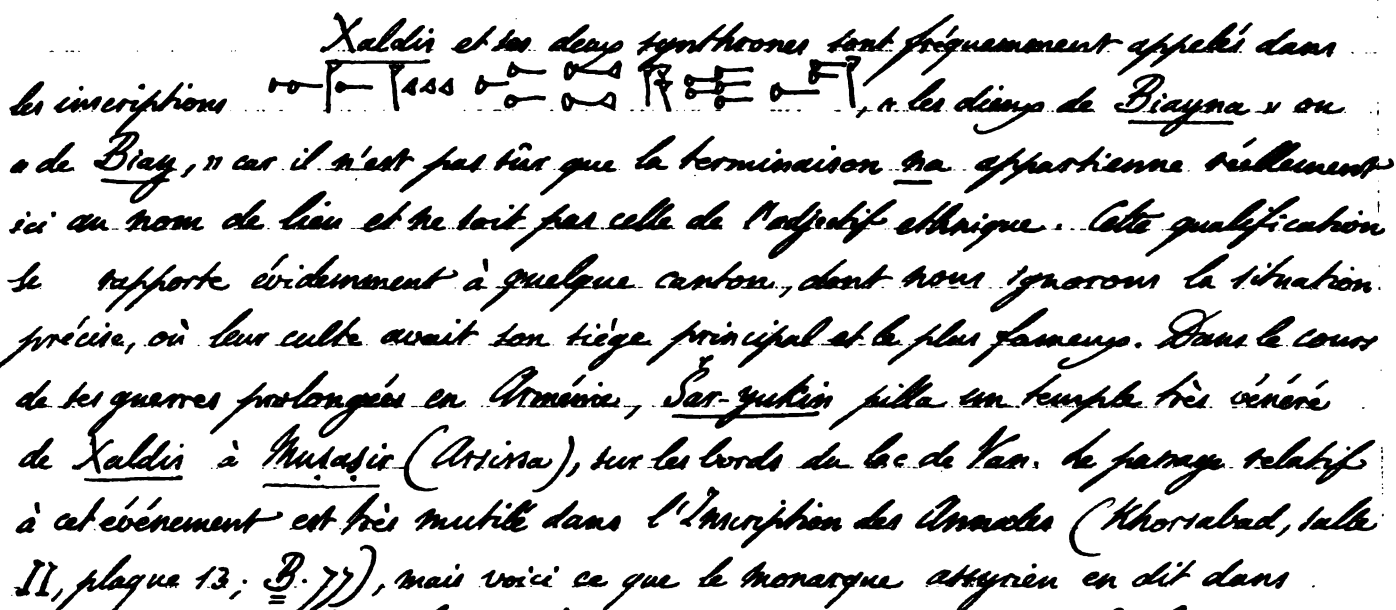 Xaldis et ses deux synthrones sont fréquemment appelés dans
les inscriptions , « les dieux de Biayna » ou
« de Biay, » car il n'est pas sûr que la terminaison na appartienne réellement
ici au nom de lieu et ne soit pas celle de l'adjectif ethnique. Cette qualification
se rapporte évidemment à quelque canton, dont nous ignorons la situation
précise, où leur culte avait son siége principal et le plus fameux. Dans le cours
de ses guerres prolongées en Arménie, Šar-yukin pilla un temple très vénéré
de Xaldis à Muṣaṣir (Arsissa), sur les bords du lac de Van. Le passage relatif
à cet événement est très mutilé dans l'Inscription des Annales (Khorsabad, salle
II, plaque 13; B. 77), mais voici ce que le monarque assyrien en dit dans